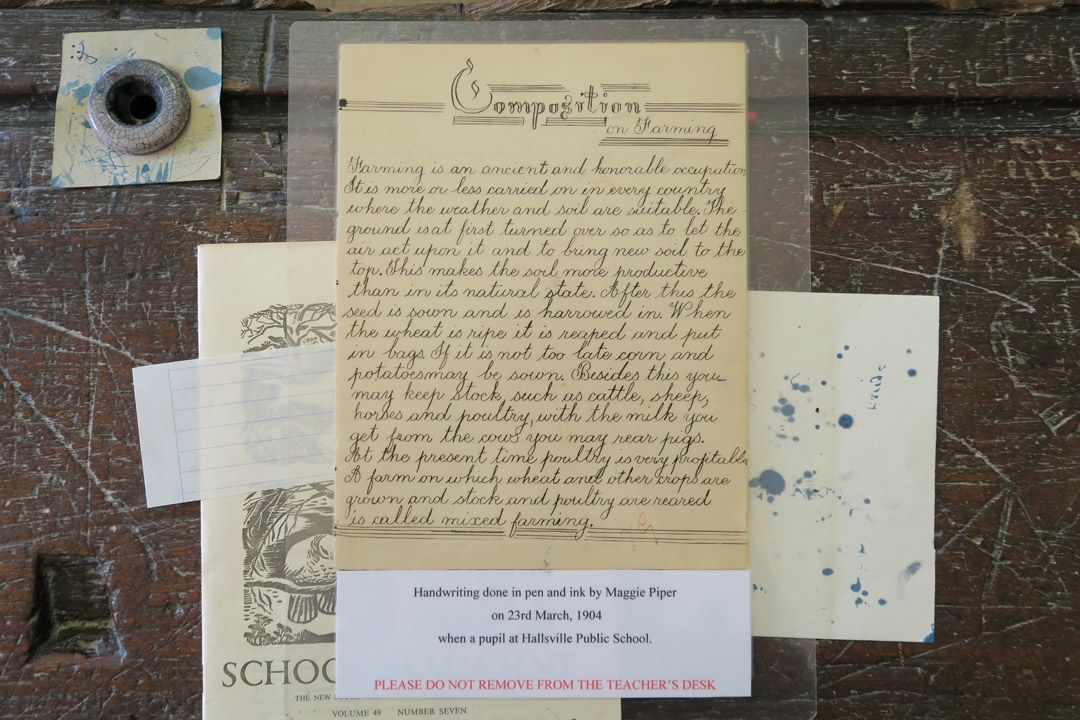 Composition
on Farming
Farming is an ancient and honorable occupation
It is more or less carried on in every country
where the weather and soil are suitable. The
ground is at first turned over so as to let the
air act upon it and to bring new soil to the
top. This makes the soil more productive
than in its natural state. After this the
seed is sown and is harrowed in. When
the wheat is ripe it is reaped and put
in bags. If it is not too late corn and
potatoes may be sown. Besides this you
may keep stock, such as cattle, sheep,
horses and poultry, with the milk you
get from the cows you may rear pigs.
At the present time poultry is very profitable.
A farm on which wheat and other crops are
grown and stock and poultry are reared
is called mixed farming.
Handwriting done in pen and ink by Maggie Piper
on 23rd March, 1904
when a pupil at Hallsville Public School.
PLEASE DO NOT REMOVE FROM THE TEACHER'S DESK
SCHOO
THE NEW
VOLUME 49 NUMBER SEVEN